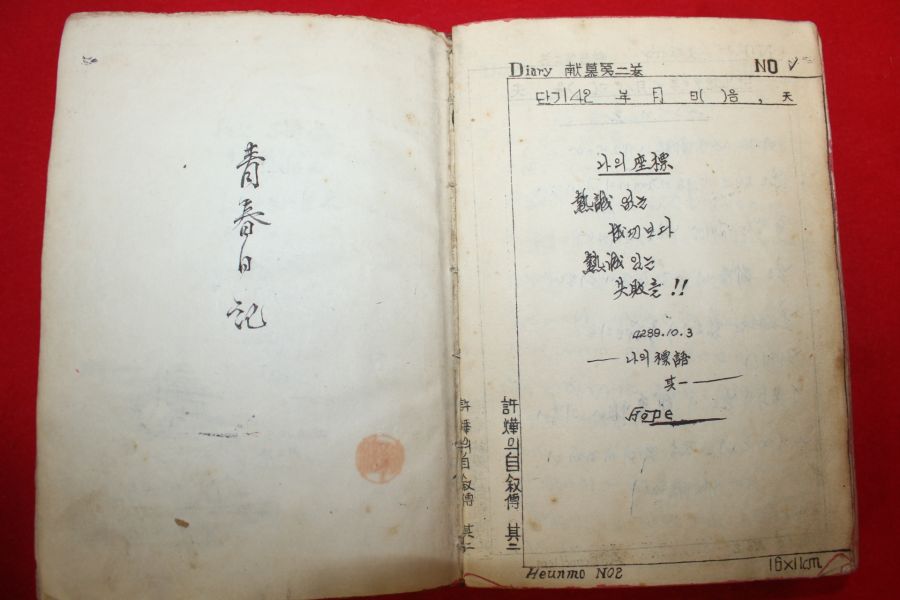 青春日記
許燁의自叙傳 其二
許燁의自叙傳 其二
Diary 第二 NO
단기42 年 月 日( )음 , 天
나의 座標
熱誠 있는
成功보다
熱誠 있는
失敗를 !!
4289.10.3
— 나의 標語
其一 —
Hope
Heunmo NO2
16×11cm